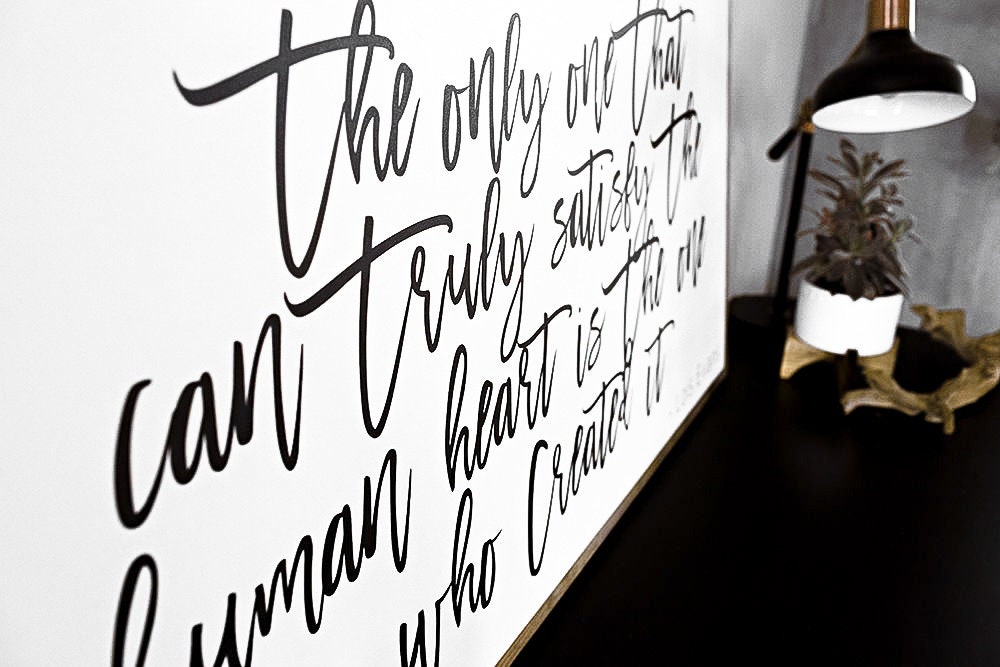 the only one that
can truly satisfy the
human heart is the one
who Created it